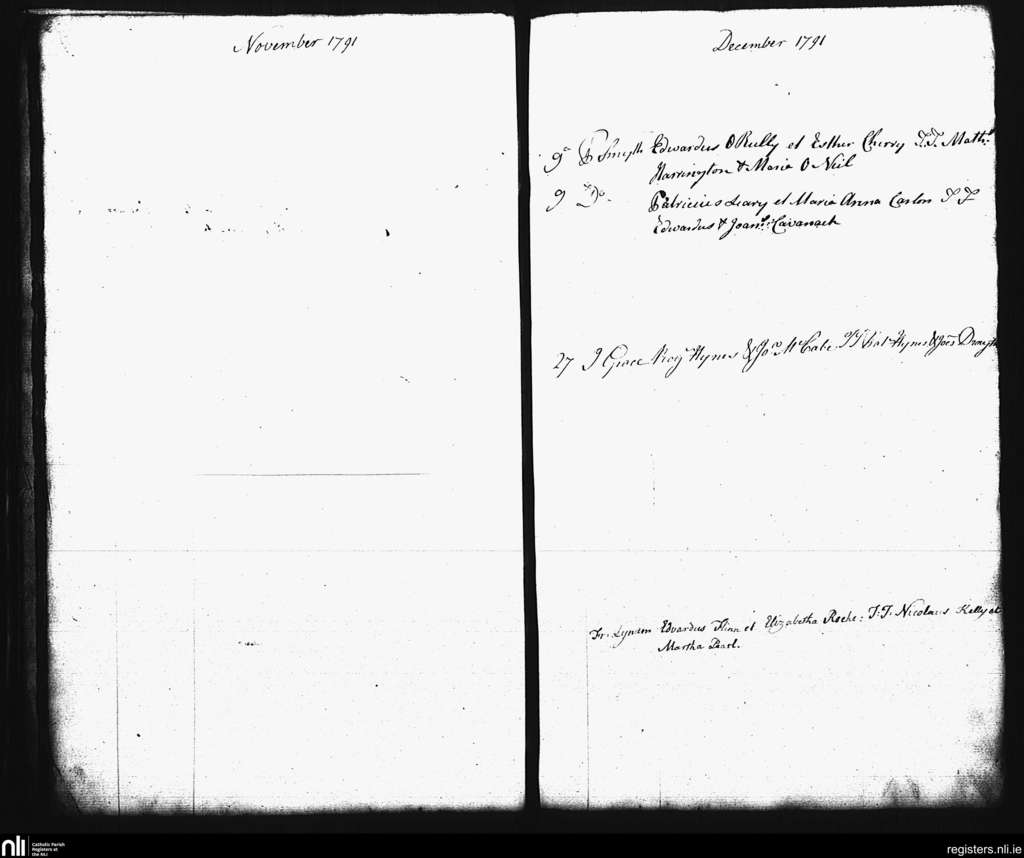 November 1791
December 1791
9a P Smyth Edwardus O Reilly et Esther Cherry T.T. Math:s
Harrington & Maria O Neil
9 Do. Patricius Leary et Maria Anna Carlon T T
Edwardus & Joan: Cavanagh
27 J Grace Hynes & Jos McCabe. TT Hynes & Joes
Fr: Lynam Edvardus Flinn et Elizabetha Roche: T:T: Nicolaus Kelly et
Martha Pearl.
nli
Catholic Parish
Registers at
the NLI
registers.nli.ie